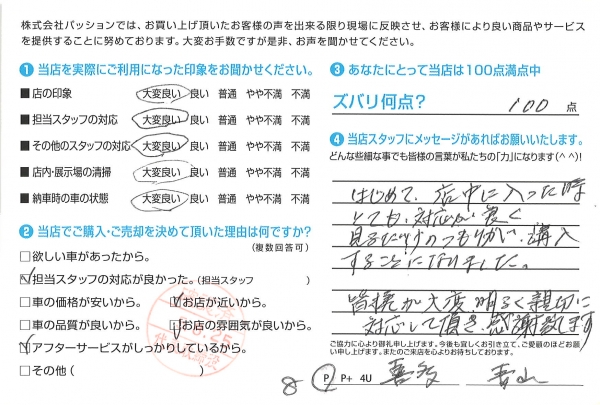 株式会社パッションでは、お買い上げ頂いたお客様の声を出来る限り現場に反映させ、お客様により良い商品やサービス
を提供することに努めております。大変お手数ですが是非、お声を聞かせてください。
❶ 当店を実際にご利用になった印象をお聞かせください。
■ 店の印象 大変良い 良い 普通 やや不満 不満
■ 担当スタッフの対応 大変良い 良い 普通 やや不満 不満
■ その他のスタッフの対応 大変良い 良い 普通 やや不満 不満
■ 店内・展示場の清掃 大変良い 良い 普通 やや不満 不満
■ 納車時の車の状態 大変良い 良い 普通 やや不満 不満
❷ 当店でご購入・ご売却を決めて頂いた理由は何ですか?
(複数回答可)
□欲しい車があったから。
☑担当スタッフの対応が良かった。(担当スタッフ )
□車の価格が安いから。 ☑お店が近いから。
□車の品質が良いから。 ☑お店の雰囲気が良いから。
☑アフターサービスがしっかりしているから。
□その他( )
❸ あなたにとって当店は100点満点中
ズバリ何点? 100 点
❹ 当店スタッフにメッセージがあればお願いいたします。
どんな些細な事でも皆様の言葉が私たちの「力」になります(^^)!
はじめて、店中に入った時
とても、対応が良く
見るだけのつもりがい、購入
することになりました。
皆様が大変明るく親切に
対応して頂き、感謝致します
ご協力に心より御礼申し上げます。今後も宜しくお引き立て、ご愛顧のほどお願
い申し上げます。またのご来店を心よりお待ちしております。
8 P P+ 4U 喜多